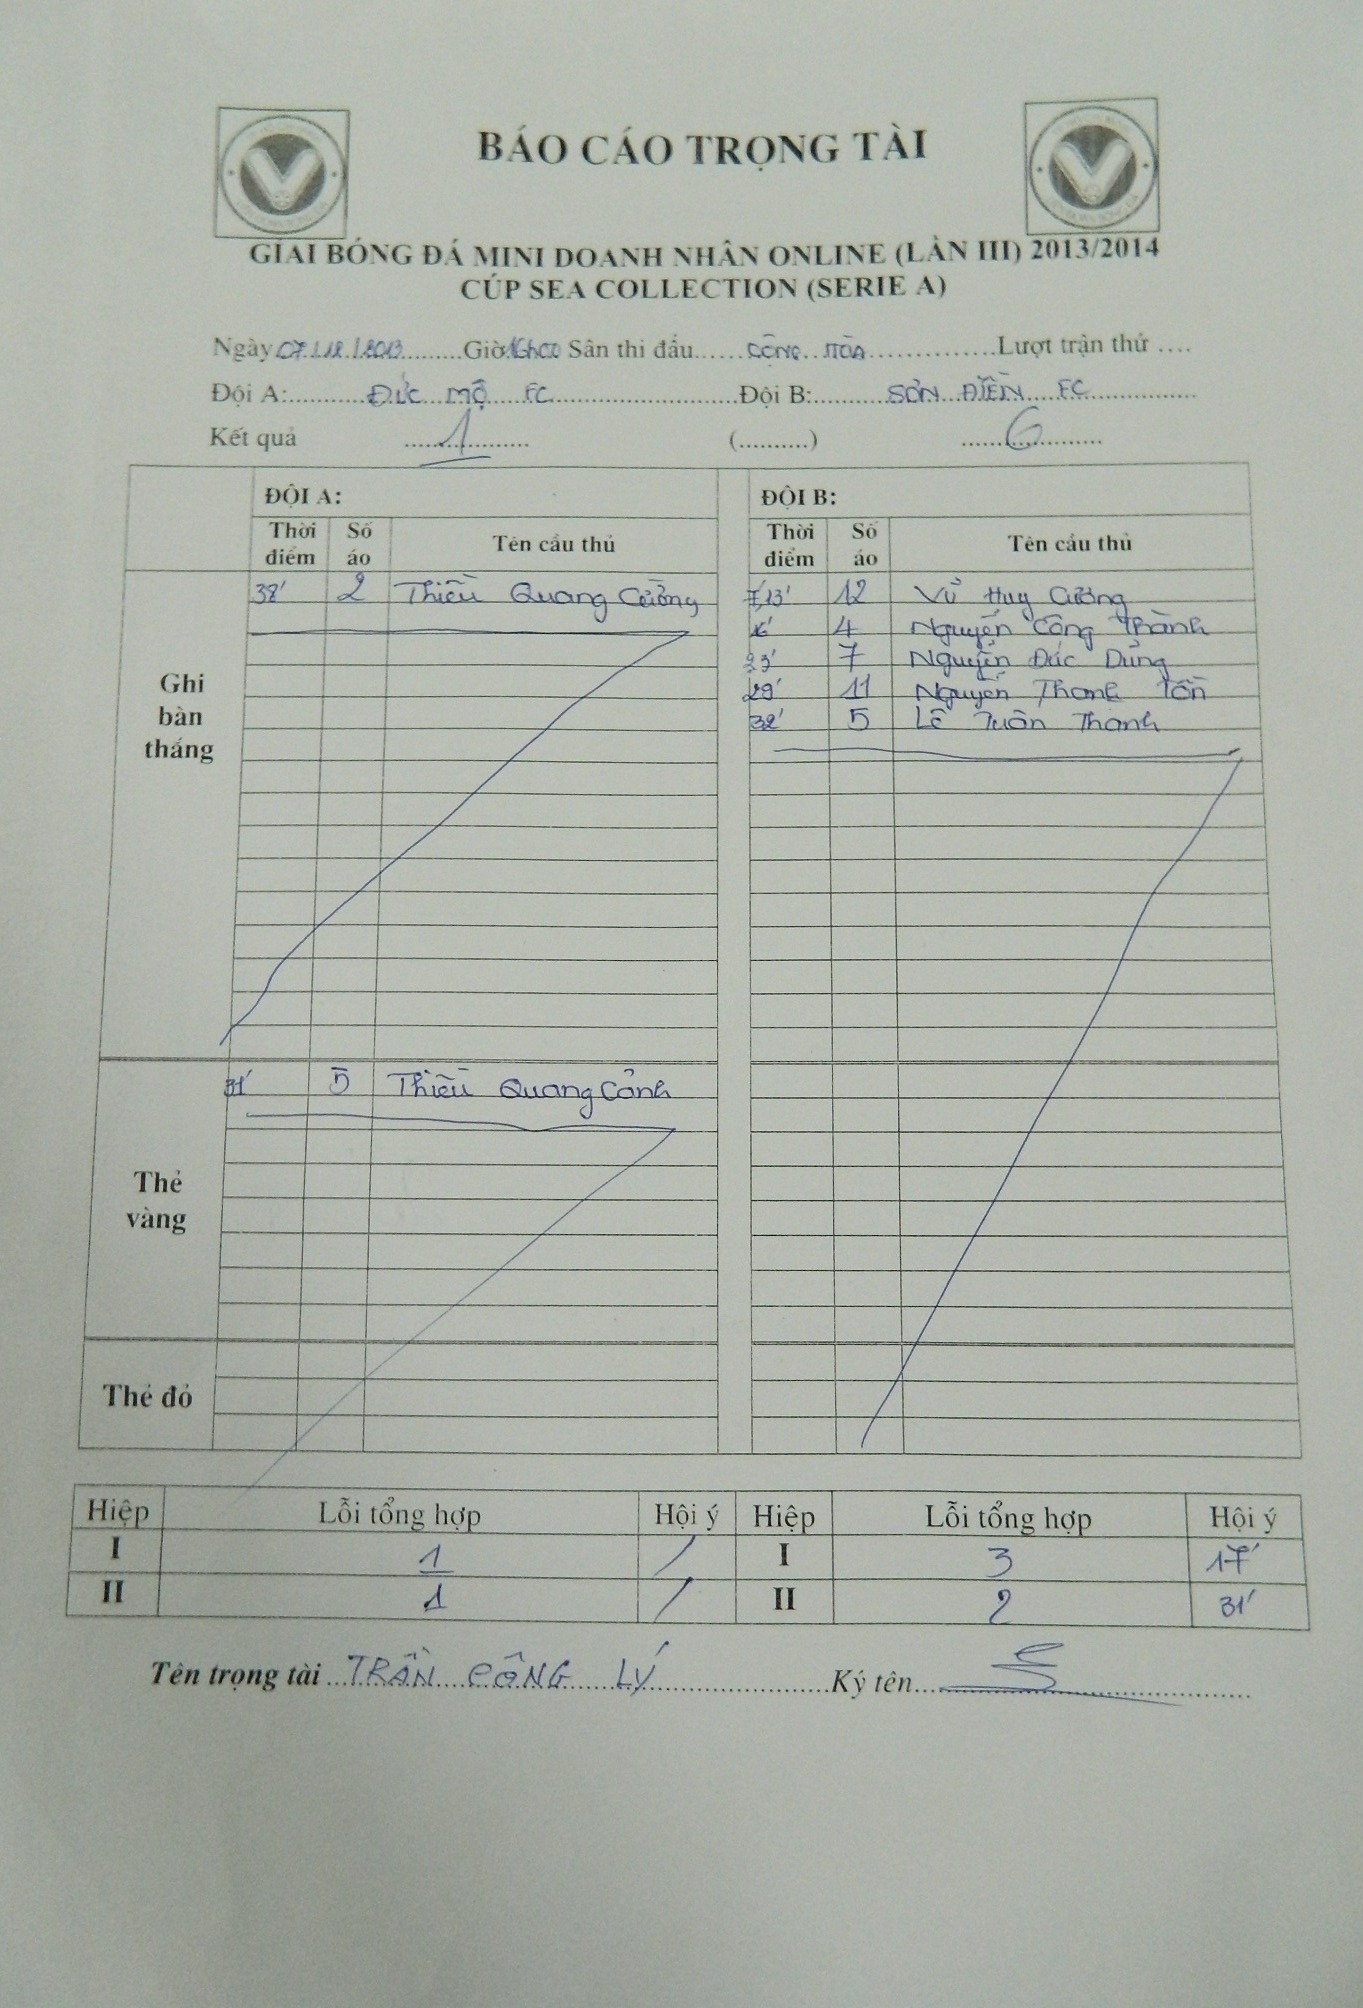 BÁO CÁO TRỌNG TÀI
GIẢI BÓNG ĐÁ MINI DOANH NHÂN ONLINE (LẦN III) 2013/2014
CÚP SEA COLLECTION (SERIE A)
Ngày 07/12/2013 Giờ 16h00 Sân thi đấu...... CỘNG HÒA ................ Lượt trận thứ ....
Đội A:........... ĐỨC MỘ FC ........................ Đội B:.......... SƠN ĐIỀN FC ...............
Kết quả ....... 1 ....... (..........) ....... 6 .......
ĐỘI A: ĐỘI B:
Thời điểm Số áo Tên cầu thủ Thời điểm Số áo Tên cầu thủ
Ghi bàn thắng
38' 2 Thiều Quang Cường 7,13' 12 Vũ Huy Cường
16' 4 Nguyễn Công Thành
23' 7 Nguyễn Đức Dũng
29' 11 Nguyễn Thanh
32' 5 Lê Tuấn Thanh
Thẻ vàng
31' 5 Thiều Quang Cảnh
Thẻ đỏ
Hiệp Lỗi tổng hợp Hội ý Hiệp Lỗi tổng hợp Hội ý
I 1 / I 3 17'
II 1 / II 2 31'
Tên trọng tài ... TRẦN CÔNG LÝ ................ Ký tên................